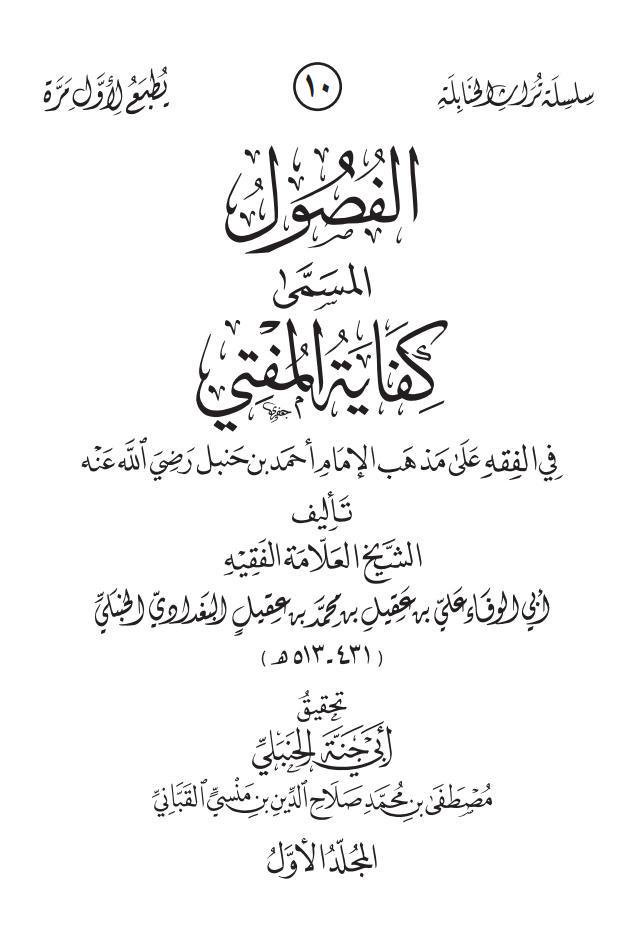 سِلسِلَة تُرَاثِ الحَنَابِلَةِ ١٠ يُطبَعُ لِأَوَّلِ مَرَّة
الفُصُولُ
المسَمَّىٰ
كِفَايَةُ المُفْتِي
فِي الفِقهِ عَلَىٰ مَذهَب الإِمَامِ أحمَد بن حَنبل رَضِيَ ٱللَّه عَنْه
تَأليف
الشَّيْخِ العَلّامَة الفَقِيْهِ
أَبِي الوفَاءِ عَلِيّ بن عَقِيلِ بن مُحمَّد بن عقِيلٍ البَغدَاديِّ الحَنبَليِّ
(٤٣١ - ٥١٣ هـ)
تحقيقُ
أَبي جَنَّةَ الحَنبَليِّ
مُصْطَفَىٰ بنِ مُحَمَّدِ صَلَاحِ ٱلدِّينِ بنِ مَنْسِيٍّ ٱلقَبَّانِيِّ
المجُلّدُ الأَوَّلُ